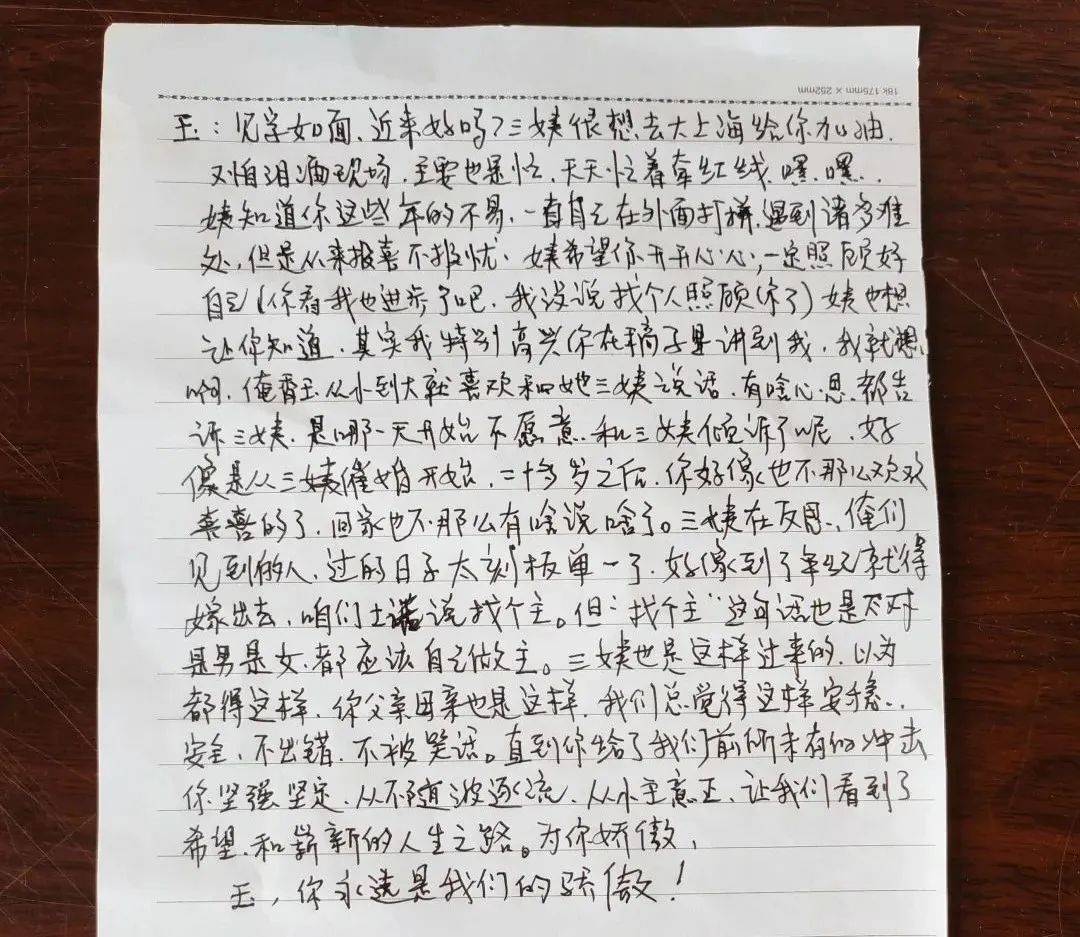 18k 175mm × 252mm
玉：见字如面、近来好吗？三姨很想去大上海给你加油.
又怕泪洒现场．主要也是忙、天天忙着牵红线、嘿、嘿..
姨知道你这些年的不易、一直自己在外面打拼、遇到诸多难
处，但是从来报喜不报忧、姨希望你开开心心，一定照顾好
自己（你看我也进步了吧、我没说找个人照顾你了）姨也想
让你知道、其实我特别高兴你在稿子里讲到我、我就想、
啊、俺香玉从小到大就喜欢和她三姨说话、有啥心思、都告
诉三姨、是哪一天开始不愿意、和三姨倾诉了呢、好
像是从三姨催婚开始、二十多岁之后、你好像也不那么欢欢
喜喜的了、回家也不那么有啥说啥了。三姨在反思.、俺们
见到的人、过的日子太刻板单一了、好像到了年纪就得
嫁出去、咱们土话说找个主。但“找个主”这句话也是不对
是男是女、都应该自己做主。三姨也是这样过来的、以为
都得这样、你父亲母亲也是这样、我们总觉得这样安稳..
安全、不出错、不被笑话。直到你给了我们前所未有的冲击
你坚强坚定、从不随波逐流、从小主意正、让我们看到了
希望、和崭新的人生之路。为你骄傲，
玉，你永远是我们的骄傲！